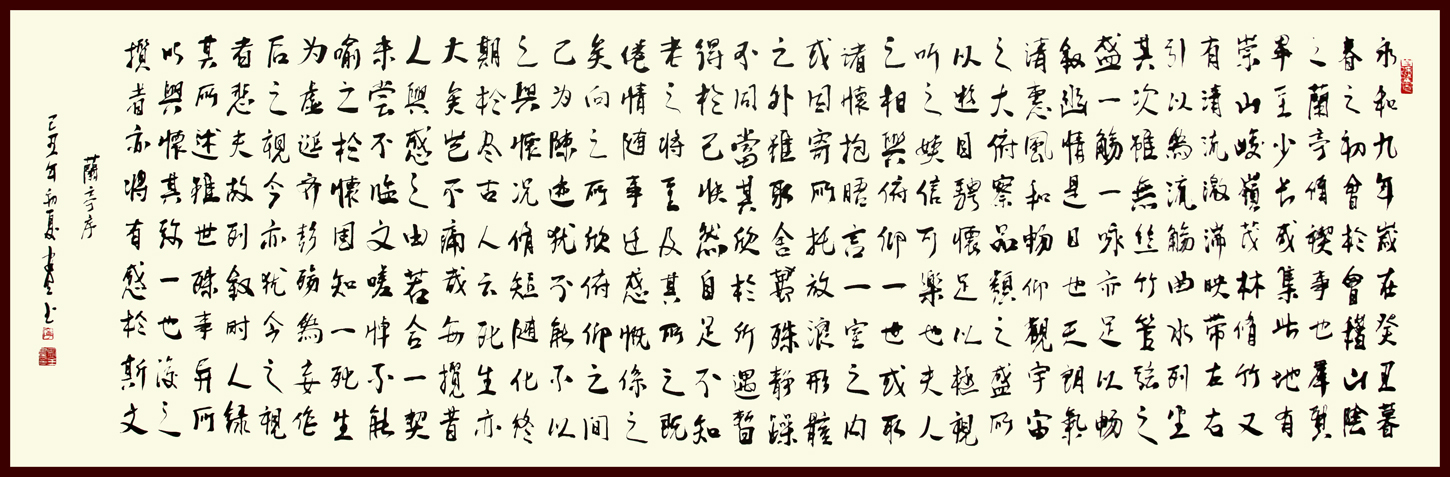 永和九年歲在癸丑暮
春之初會於會稽山陰
之蘭亭脩禊事也羣賢
畢至少長咸集此地有
崇山峻嶺茂林脩竹又
有清流激湍映带左右
引以為流觴曲水列坐
其次雖無丝竹管弦之
盛一觴一咏亦足以畅
叙幽情是日也天朗氣
清惠風和畅仰觀宇宙
之大俯察品類之盛所
以遊目騁懷足以極視
听之娱信可樂也夫人
之相與俯仰一世或取
诸懷抱晤言一室之内
或因寄所托放浪形骸
之外雖取舍萬殊静躁
不同當其欣於所遇暫
得於己快然自足不知
老之将至及其所之既
倦情随事迁感慨係之
矣向之所欣俯仰之間
已为陳迹犹不能不以
之興懷况脩短随化终
期於尽古人云死生亦
大矣岂不痛哉每攬昔
人興感之由若合一契
未嘗不临文嗟悼不能
喻之於懷固知一死生
为虚诞齐彭殇為妄作
后之視今亦犹今之視
者悲夫故列叙时人録
其所述雖世殊事异所
以興懷其致一也後之
攬者亦将有感於斯文
蘭亭序
己丑年初夏书